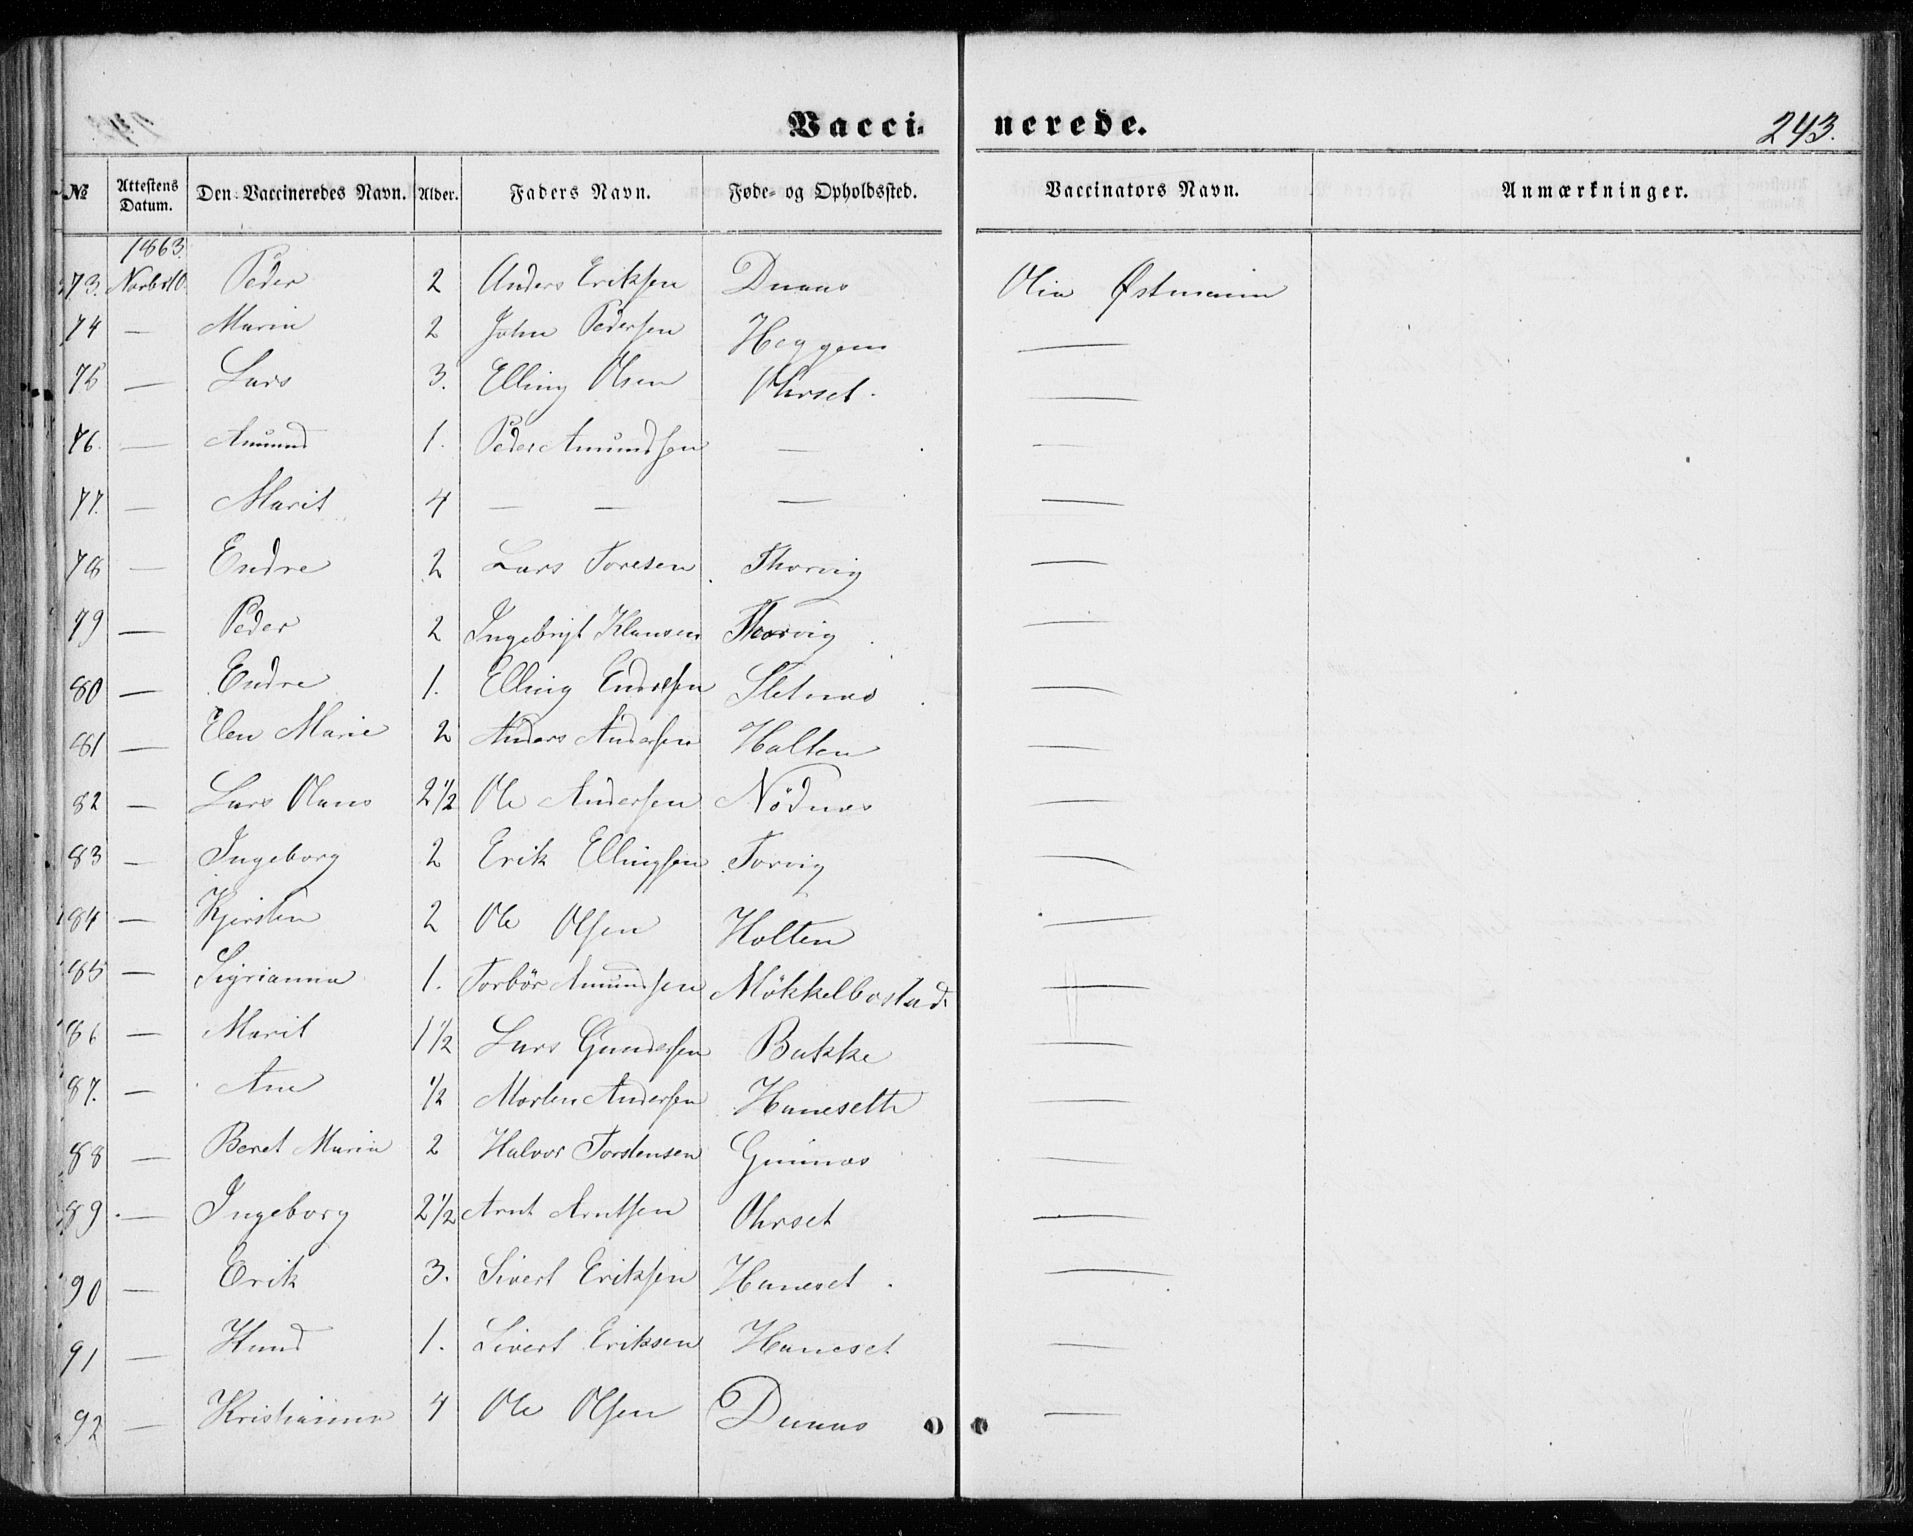 Vacci- nerede. 243.
№ Attestens Datum. Den Vaccineredes Navn. Alder. Faders Navn. Føde- og Opholdssted. Vaccinators Navn. Anmærkninger.
1863.
73. Peder 2 Anders Eriksen Østmann
74 — Marin 2 John Pedersen Heggem —
75 — Lars 3. Elling Olsen Ohrset. —
76. — Amund 1. Peder Amundsen — —
77. — Marit 4 — — — —
78 — Endre 2 Lars Toresen Thorvig —
79 — Peder 2 Ingebrigt Klausen Thorvig —
80 — Endre 1. Elling Endresen Sletnæs —
81 — Elen Marie 2 Anders Andersen Halten —
82 — Lars Olaus 2 1/2 Ole Andersen Nödnæs —
83 — Ingeborg 2 Erik Ellingsen Torvig —
84 — Kjersten 2 Ole Olsen Holten —
85 — Sigrianna 1. Torbör Amundsen Mökkelbostad —
86 — Marit 1 1/2 Lars Gundersen Bakke —
87. — Ane 1/2 Morten Andersen Haneseth —
88 — Beret Maria 2 Halvor Torstensen —
89 — Ingeborg 2 1/2 Arnt Arntsen Ohrset —
90 — Erik 3. Sivert Eriksen Haneset —
91 — Knud 1. Sivert Eriksen Haneset —
92 — Kristianna 4 Ole Olsen —